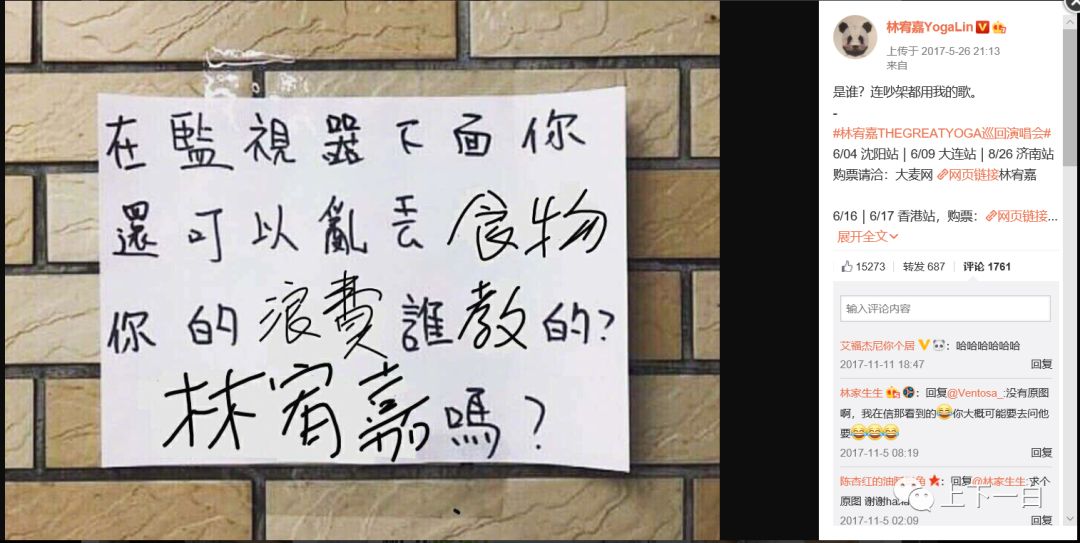 在監視器下面你
還可以亂丟食物
你的浪費誰教的?
林宥嘉嗎?
林宥嘉YogaLin
上传于 2017-5-26 21:13
来自
是谁？连吵架都用我的歌。
-
#林宥嘉THEGREATYOGA巡回演唱会#
6/04 沈阳站 | 6/09 大连站 | 8/26 济南站
购票请洽：大麦网 网页链接林宥嘉
6/16 | 6/17 香港站，购票：网页链接...
展开全文
15273 转发 687 评论 1761
输入评论内容
艾福杰尼你个居 ：哈哈哈哈哈哈
2017-11-11 18:47 回复
林家生生 ：回复@Ventosa_:没有原图
啊，我在信那看到的你大概可能要去问他
要
2017-11-5 08:19 回复
陈杏红的油 角 ：回复@林家生生:求个
原图 谢谢ha
2017-11-5 02:09 回复
上下一白